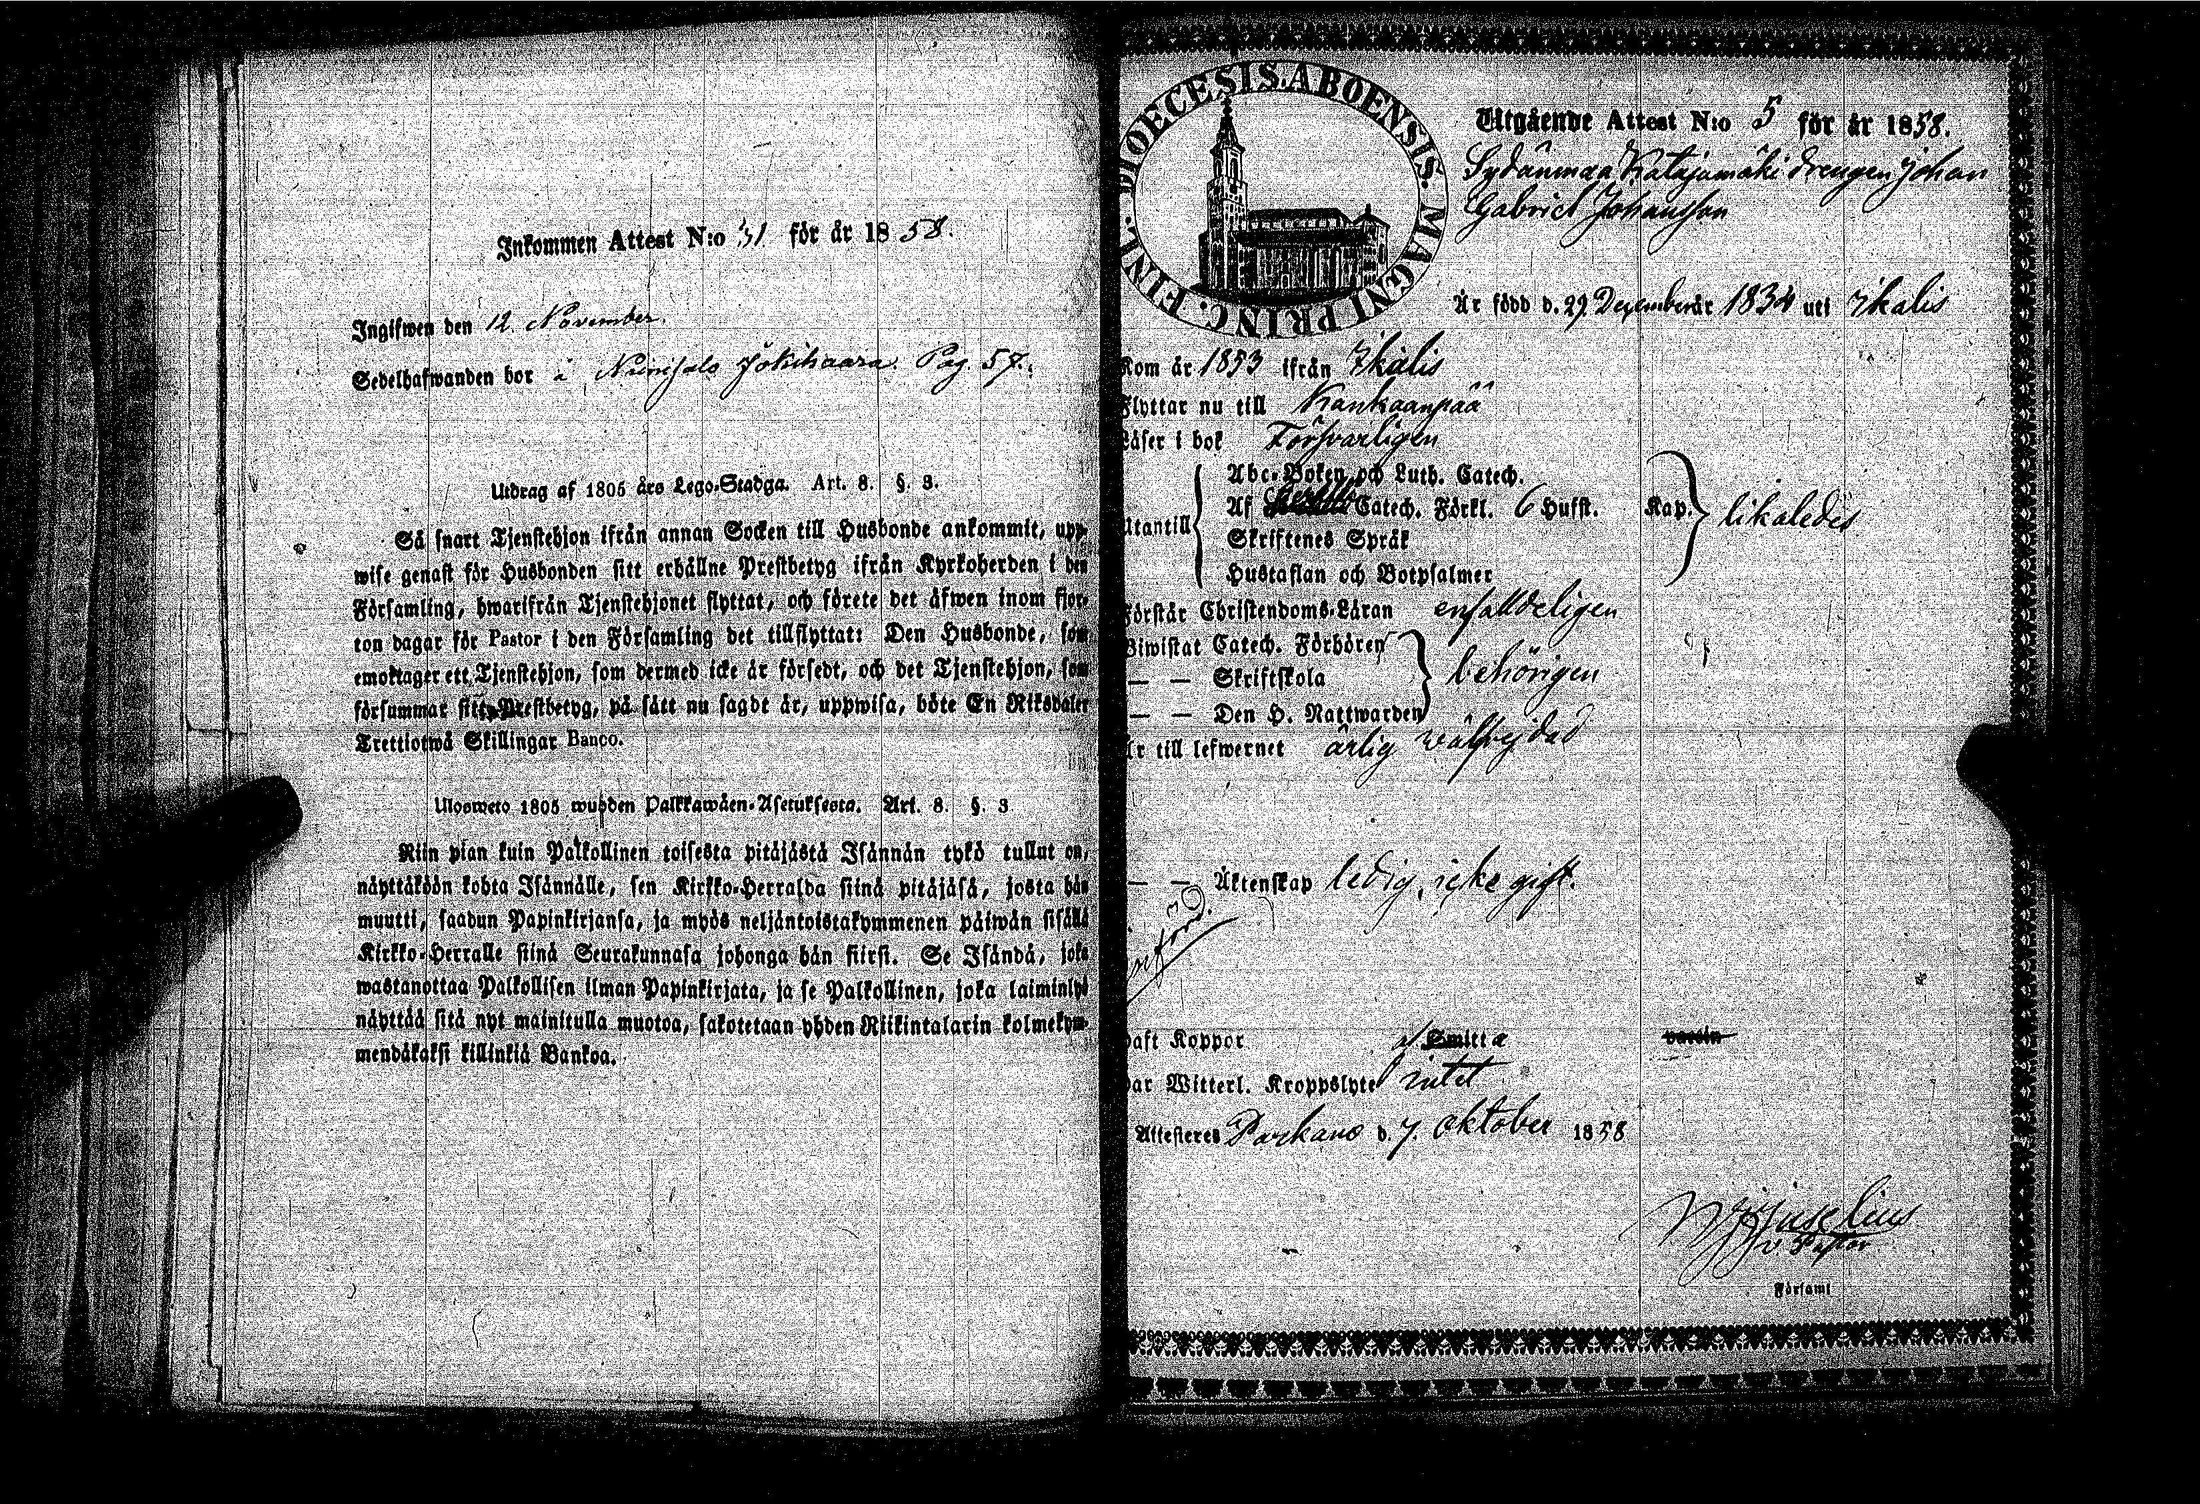 Inkommen Attest N:o 31 för år 1858.
Ingifwen den 12 November.
Sedelhafwanden bor å Jokihaara. Pag. 57.
Utdrag af 1805 års Lego-Stadga. Art. 8. §. 3.
Så snart Tjenstehjon ifrån annan Socken till Husbonde ankommit, upp-
wise genast för Husbonden sitt erhållne Prestbetyg ifrån Kyrkoherden i den
Församling, hwarifrån Tjenstehjonet flyttat, och förete det äfwen inom fjor-
ton dagar för Pastor i den Församling det tillflyttat: Den Husbonde, som
emottager ett Tjenstehjon, som dermed icke är försedt, och det Tjenstehjon, som
försummar sitt Prestbetyg, på sätt nu sagdt är, uppwisa, böte En Riksdaler
Trettiotwå Skillingar Banco.
Ulosweto 1805 wuoden Palkkawäen-Asetuksesta. Art. 8. §. 3
Niin pian kuin Palkollinen toisesta pitäjästä Isännän tykö tullut on,
näyttäköön kohta Isännälle, sen Kirkko-Herralda siinä pitäjäsä, josta hän
muutti, saadun Papinkirjansa, ja myös neljäntoistakymmenen päiwän sisällä
Kirkko-Herralle siinä Seurakunnasa johonga hän siirsi. Se Isändä, joka
wastanottaa Palkollisen ilman Papinkirjata, ja se Palkollinen, joka laiminlyö
näyttää sitä nyt mainitulla muotoa, sakotetaan yhden Riikintalarin kolmekym-
mendäkaksi killinkiä Bankoa.
DIOECESIS. ABOENSIS. MAGNI PRINC. FINL.
Utgående Attest N:o 5 för år 1858.
Sydänmaa Katajamäki drengen Johan
Gabriel Johansson
Är född d. 29 Dezember år 1834 uti Ikalis
Kom år 1853 ifrån Ikalis
Flyttar nu till Kankaanpää
Läser i bok Försvarligen
Utantill
Abc-Boken och Luth. Catech.
Af Catech. Förkl. 6 Hufst. Kap. likaledes
Skriftenes Språk
Hustaflan och Botpsalmer
Förstår Christendoms-Läran enfalldeligen
Biwistat Catech. Förhören
— — Skriftskola behörigen
— — Den H. Nattwarden
Är till lefwernet ärlig wälfrejdad
— — Äktenskap ledig, icke gift.
Haft Koppor Smitta vaccin
Har Witterl. Kroppslyte intet
Attesteres Parkano d. 7. Oktober 1858
Juselius
v Pastor
Församl